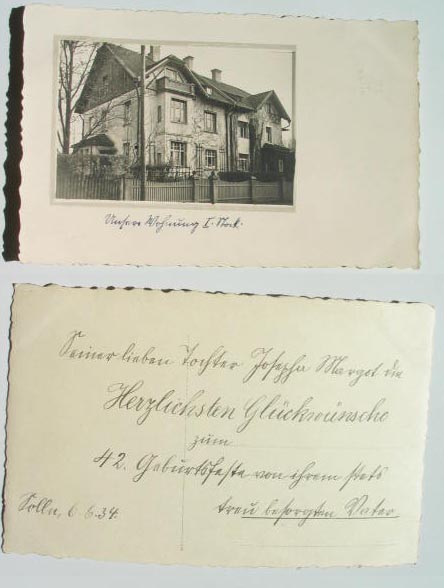 Unsere Wohnung I. Stock.
Seiner lieben Tochter Josepha Margot die
Herzlichsten Glückwünsche
zum
42. Geburtsfeste von ihrem stets
treu besorgten Vater.
Solln, 6.6.34.